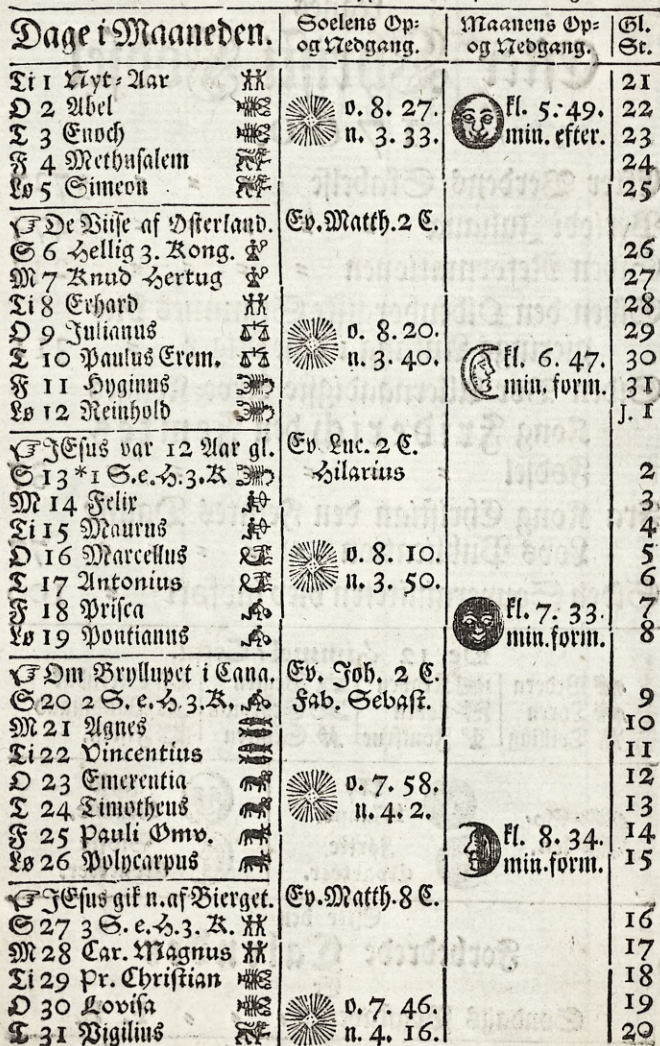 Dage i Maaneden. Soelens Op- og Nedgang. Maanens Op- og Nedgang. Gl. St.
Ti 1 Nyt-Aar 21
O 2 Abel o. 8. 27. kl. 5. 49. 22
T 3 Enoch n. 3. 33. min. efter. 23
F 4 Methusalem 24
Lø 5 Simeon 25
☞ De Viise af Østerland. Ev. Matth. 2 C.
S 6 Hellig 3. Kong. 26
M 7 Knud Hertug 27
Ti 8 Erhard 28
O 9 Julianus o. 8. 20. 29
T 10 Paulus Erem. n. 3. 40. kl. 6. 47. 30
F 11 Hyginus min. form. 31
Lø 12 Reinhold J. 1
☞ JEsus var 12 Aar gl. Ev. Luc. 2 C.
S 13 *1 S. e. H. 3. K Hilarius 2
M 14 Felix 3
Ti 15 Maurus 4
O 16 Marcellus o. 8. 10. 5
T 17 Antonius n. 3. 50. 6
F 18 Prisca kl. 7. 33 7
Lø 19 Pontianus min. form. 8
☞ Om Bryllupet i Cana. Ev. Joh. 2 C.
S 20 2 S. e. H. 3. K. Fab. Sebast. 9
M 21 Agnes 10
Ti 22 Vincentius 11
O 23 Emerentia o. 7. 58. 12
T 24 Timotheus n. 4. 2. 13
F 25 Pauli Omv. kl. 8. 34. 14
Lø 26 Polycarpus min. form. 15
☞ JEsus gik n. af Bierget. Ev. Matth. 8 C.
S 27 3 S. e. H. 3. K. 16
M 28 Car. Magnus 17
Ti 29 Pr. Christian 18
O 30 Lovisa o. 7. 46. 19
T 31 Vigilius n. 4. 16. 20